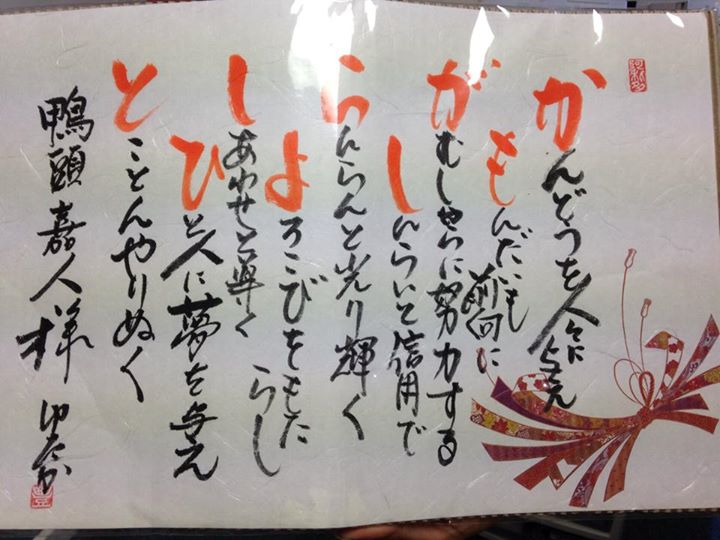 かんどうを人々に与え
もんだいも前向に
がむしゃらに努力する
しんらいと信用で
らんらんと光り輝く
よろこびをもた
らし
しあわせを導く
ひと人に夢を与え
とことんやりぬく
鴨頭嘉人様 ゆたか